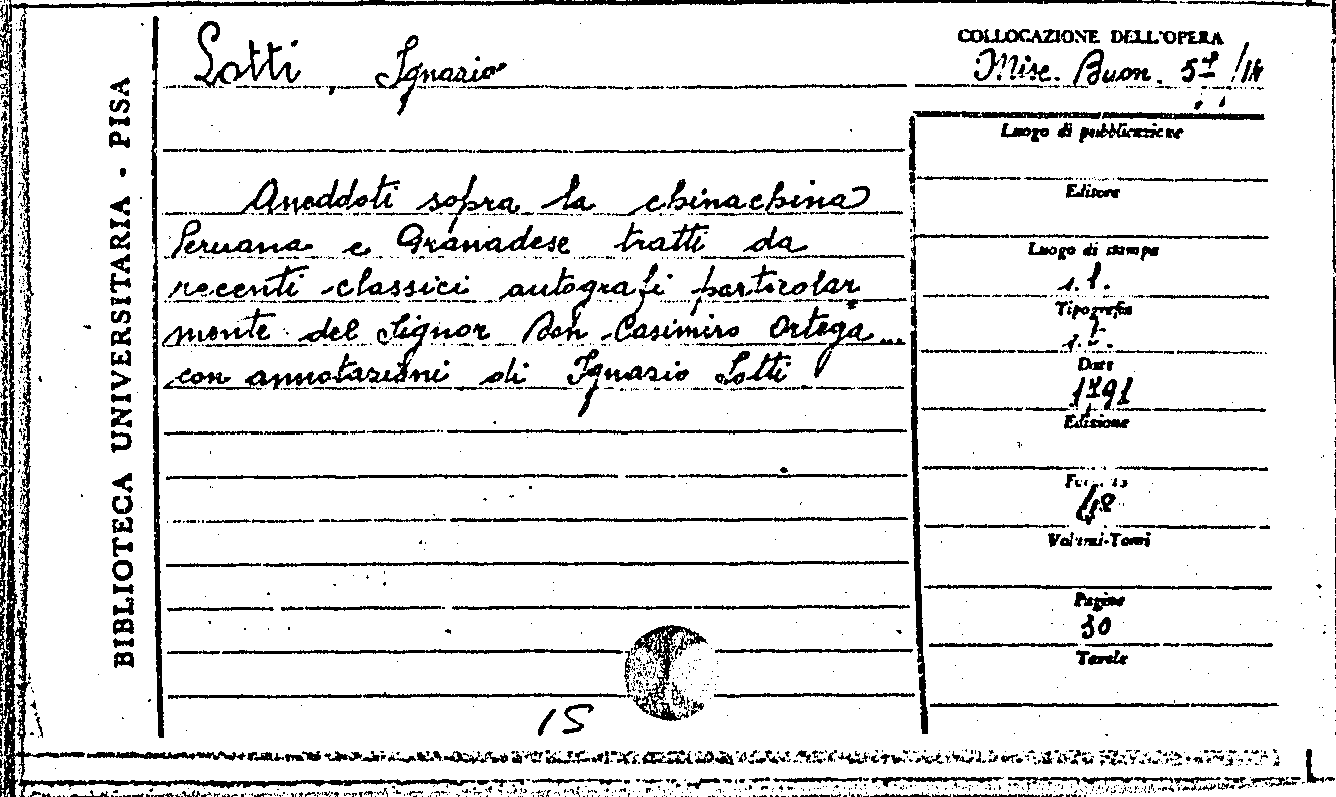 BIBLIOTECA UNIVERSITARIA - PISA
Lotti, Ignazio
COLLOCAZIONE DELL'OPERA
Misc. Buon. 57/14
Aneddoti sopra la chinachina
Peruana e Granadese tratti da
recenti classici autografi particolar
mente del Signor Don Casimiro Ortega...
con annotazioni di Ignazio Lotti
Luogo di pubblicazione
Editore
Luogo di stampa
s.l.
Tipografia
s.t.
Data
1791
Edizione
Formato
Volumi-Tomi
Pagine
30
Tavole
15